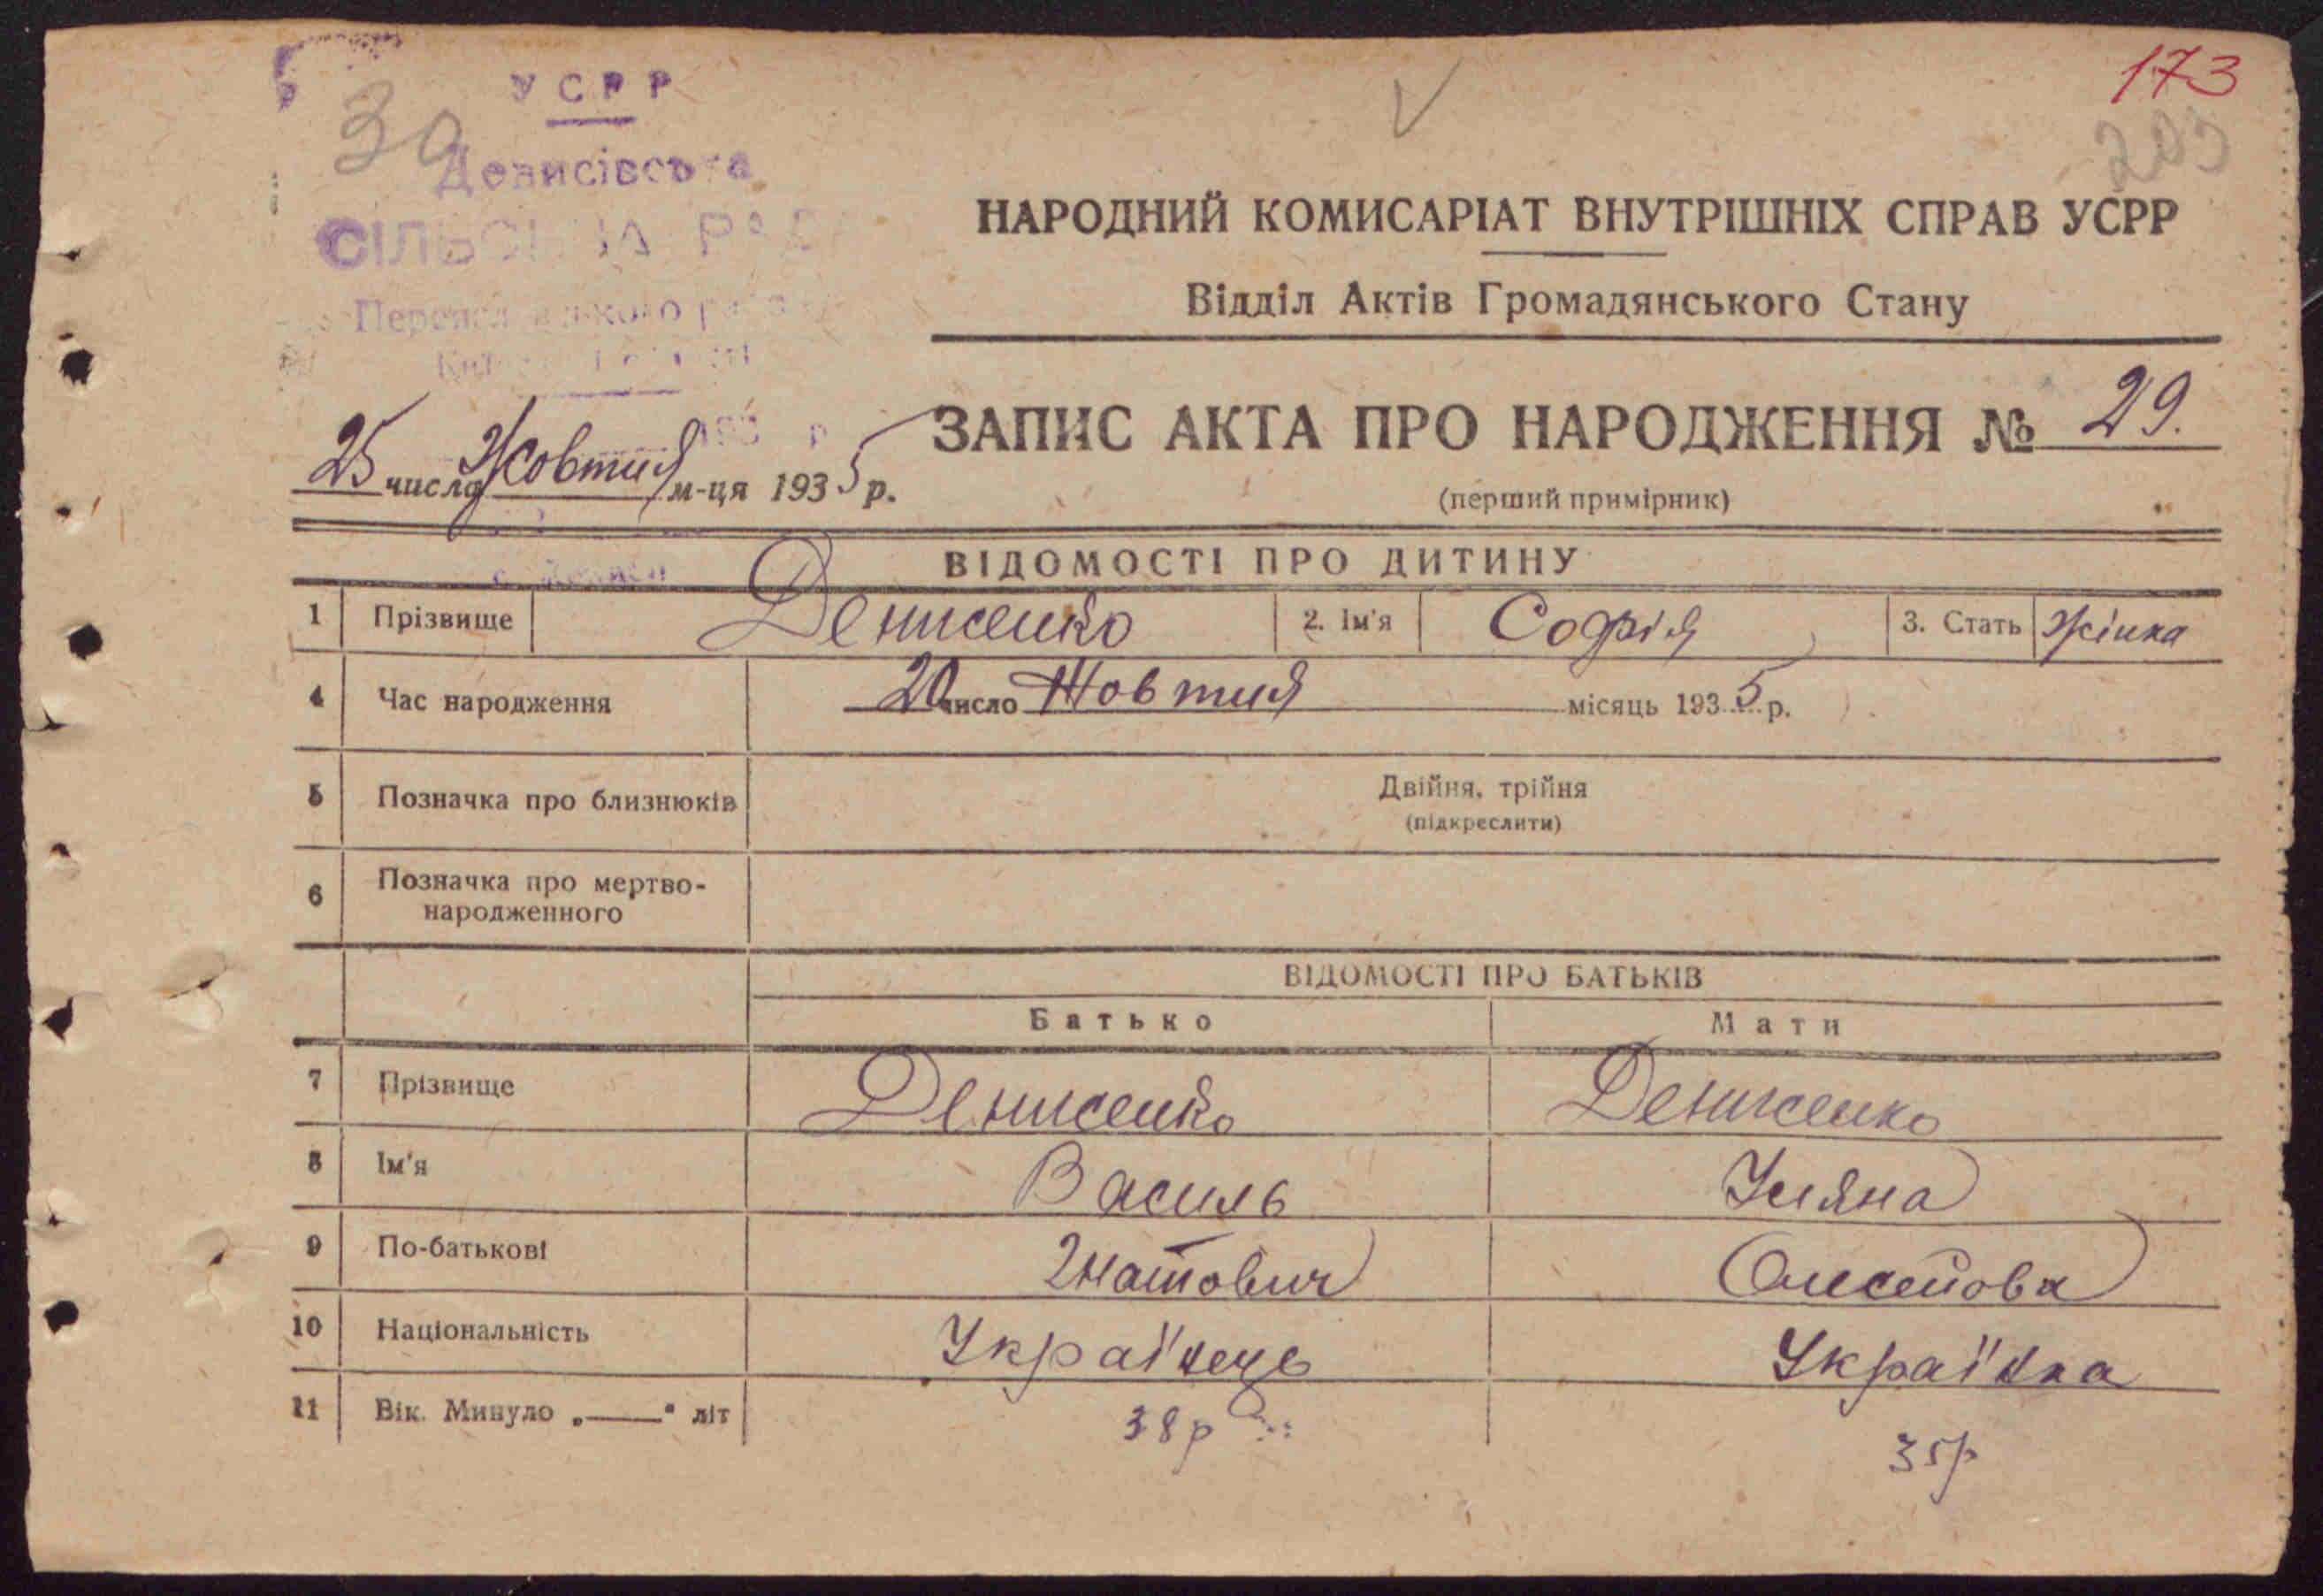 173
203
30
УСРР
Денисівська
СІЛЬСЬКА РАДА
НАРОДНИЙ КОМИСАРІАТ ВНУТРІШНІХ СПРАВ УСРР
Відділ Актів Громадянського Стану
ЗАПИС АКТА ПРО НАРОДЖЕННЯ № 29.
25 числа Жовтня м-ця 1935 р.
(перший примірник)
ВІДОМОСТІ ПРО ДИТИНУ
1 Прізвище Денисенко 2. Ім'я Софія 3. Стать Жінка
4 Час народження 20 число Жовтня місяць 1935 р.
5 Позначка про близнюків Двійня, трійня
(підкреслити)
6 Позначка про мертво-
народженного
ВІДОМОСТІ ПРО БАТЬКІВ
Батько Мати
7 Прізвище Денисенко Денисенко
8 Ім'я Василь Уляна
9 По-батькові Гнатович Олексіївна
10 Національність Українець Українка
11 Вік. Минуло „——“ літ 38р 35р